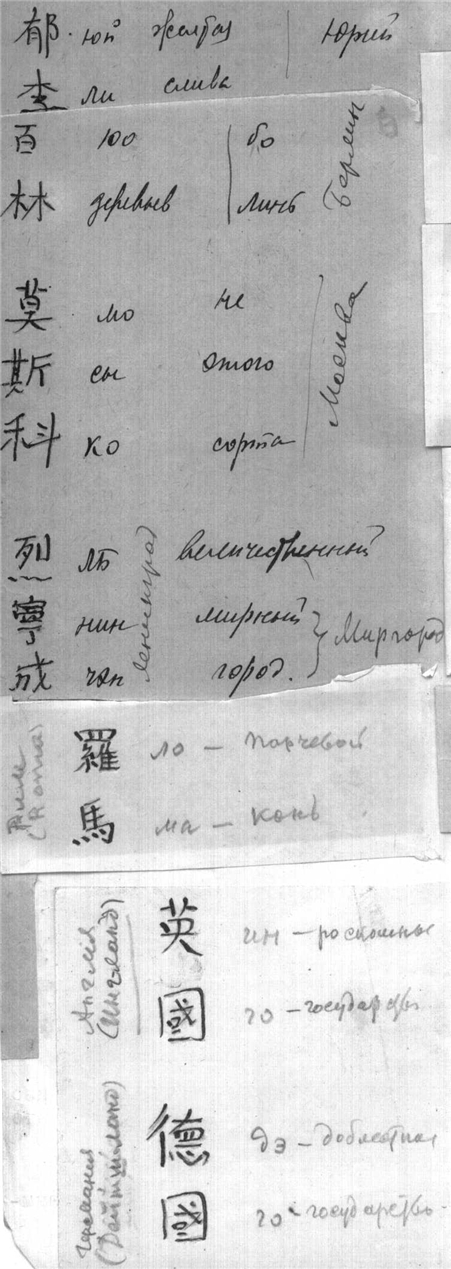 郁 · юй желтая Юрий
李 ли слива
百 100 бо Берлин
林 деревьев линь
莫 мо не Москва
斯 сы этого
科 ко сорта
烈 лѣ величественный Ленинград
寧 нин мирный Миргород
成 чэн город.
羅 ло – парчевой Рим (Roma)
馬 ма – конь
英 ин – роскошные Англия (Ингланд)
國 го – государства
德 дэ – доблестная Германия (Дайтшланд)
國 го – государство